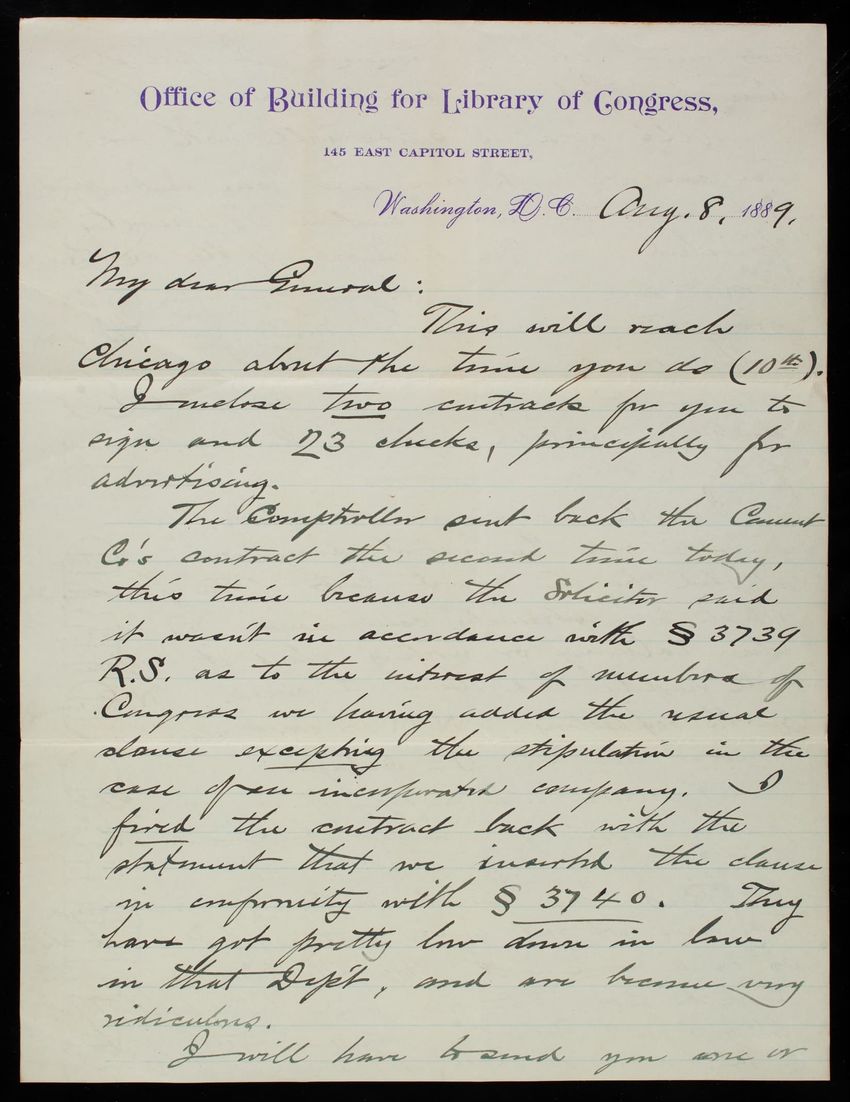 Office of Building for Library of Congress,
145 EAST CAPITOL STREET,
Washington, D.C. Aug. 8, 1889.
My dear General:
This will reach
Chicago about the time you do (10th).
I enclose two contracts for you to
sign and 23 checks, principally for
advertising.
The Comptroller sent back the Cement
Co's contract the second time today,
this time because the Solicitor said
it wasn't in accordance with § 3739
R.S. as to the interest of members of
Congress we having added the usual
clause excepting the stipulation in the
case of an incorporated company. I
fired the contract back with the
statement that we inserted the clause
in conformity with § 3740. They
have got pretty low down in law
in that Dep't, and are become very
ridiculous.
I will have to send you one or